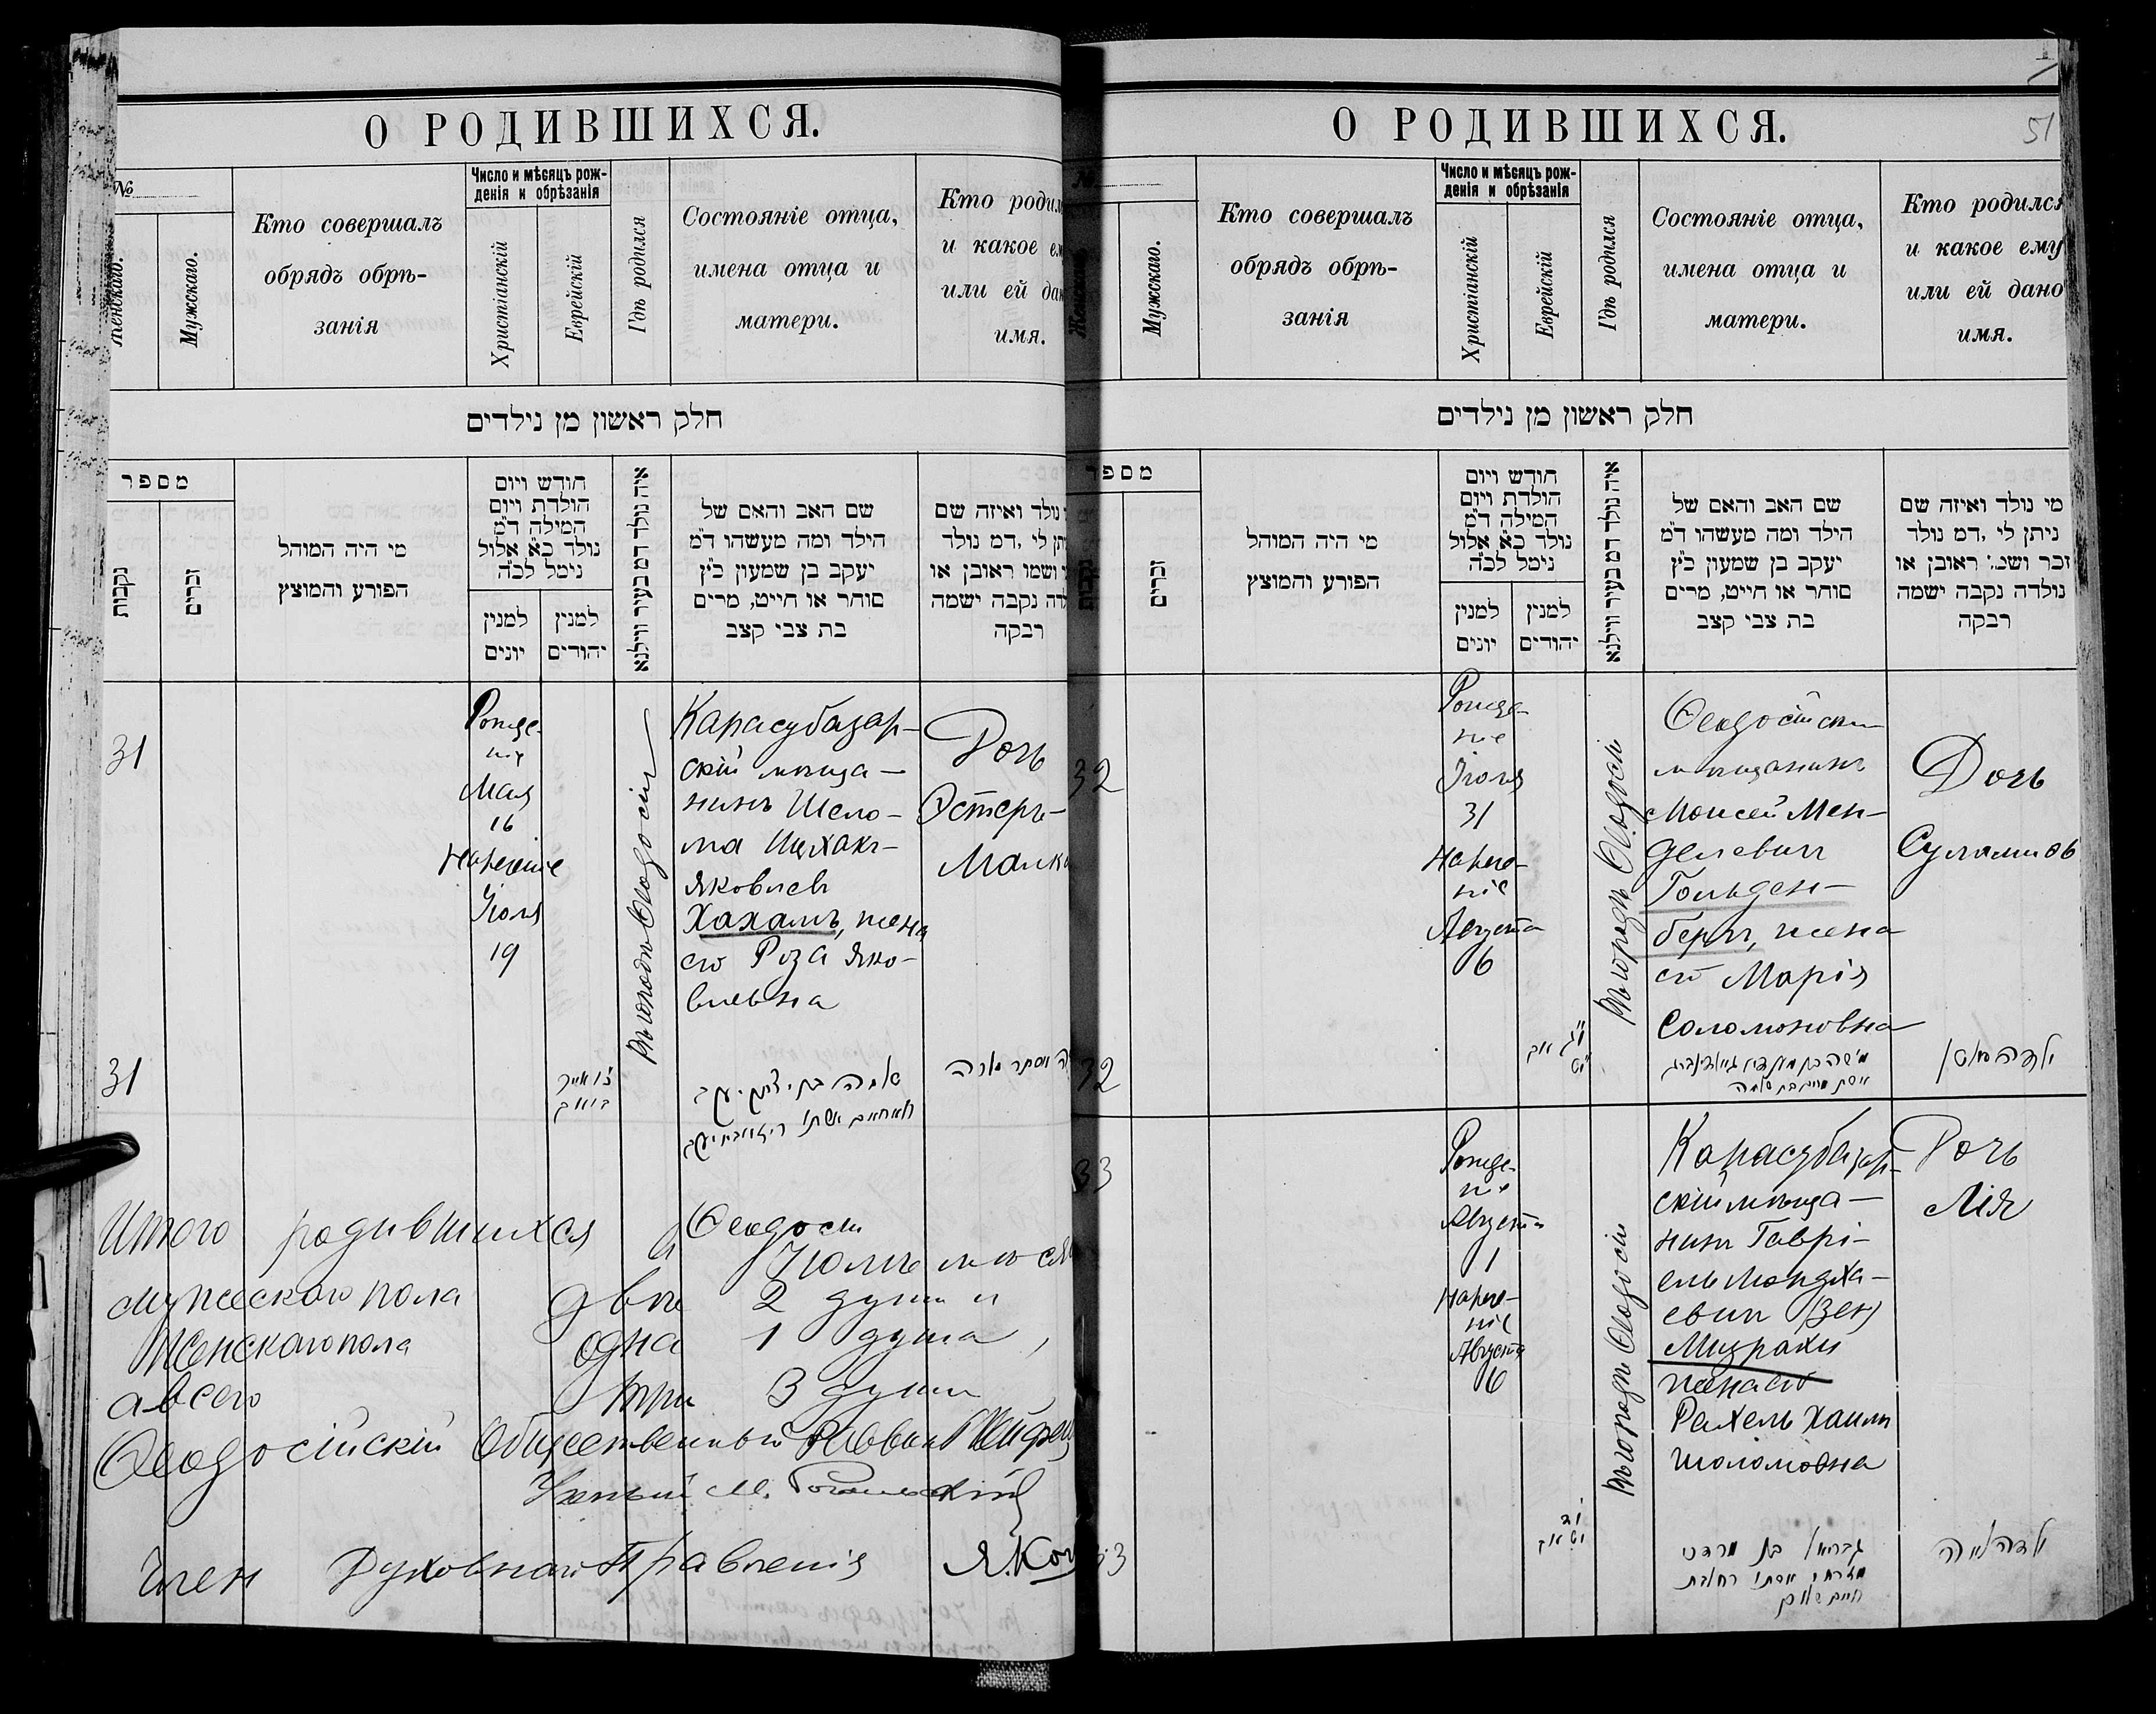 О РОДИВШИХСЯ.
№
Женскаго.
Мужскаго.
Кто совершалъ
обрядъ обрѣ-
занія
Число и мѣсяцъ рож-
денія и обрѣзанія
Христіанскій
Еврейскій
Гдѣ родился
Состояніе отца,
имена отца и
матери.
Кто родил
и какое ем
или ей дан
имя.
חלק ראשון מן נילדים
מספר
נקבות
זכרים
מי היה המוהל
הפורע והמוצץ
חודש ויום
הולדת ויום
המילה ד״מ
נולד כ״א אלול
נימל לכ״ה
למנין
יונים
למנין
יהודים
איה נולד דמ בעיר ווילנא
שם האב והאם של
הילד ומה מעשהו ד״מ
יעקב בן שמעון כ״ץ
סוחר או חייט, מרים
בת צבי קצב
נולד ואיזה שם
תן לי ,דמ נולד
ושמו ראובן או
דה נקבה ישמה
רבקה
31
Рожде-
ніе
Мая
16
Нареченіе
Іюля
19
Въ городѣ Ѳеодосіи
Карасубазар-
скій мѣща-
нинъ Шело-
ма Ицхакъ
Яковлевъ
Хахамъ, жена
его Роза Яко-
влевна
Дочь
Эстеръ-
Малка
31
Итого родившихся въ Ѳеодосіи
Іюлѣ мѣся
мужескаго пола двѣ 2 души
Женскаго пола одна 1 душа,
а всего три 3 души
Ѳеодосійскій Общественный Раввинъ
Ученый М.
Член Духовнаго Правленія Я. Ког
О РОДИВШИХСЯ.
51
№
Женскаго
Мужскаго.
Кто совершалъ
обрядъ обрѣ-
занія
Число и мѣсяцъ рож-
денія и обрѣзанія
Христіанскій
Еврейскій
Гдѣ родился
Состояніе отца,
имена отца и
матери.
Кто родился
и какое ему
или ей дано
имя.
חלק ראשון מן נילדים
מספר
נקבות
זכרים
מי היה המוהל
הפורע והמוצץ
חודש ויום
הולדת ויום
המילה ד״מ
נולד כ״א אלול
נימל לכ״ה
למנין
יונים
למנין
יהודים
איה נולד דמ בעיר ווילנא
שם האב והאם של
הילד ומה מעשהו ד״מ
יעקב בן שמעון כ״ץ
סוחר או חייט, מרים
בת צבי קצב
מי נולד ואיזה שם
ניתן לי ,דמ נולד
זכר ושמו ראובן או
נולדה נקבה ישמה
רבקה
32
Рожде-
ніе
Іюля
31
Нарече-
ніе
Августа
6
Въ городѣ Ѳеодосіи
Ѳеодосійскій
мѣщанинъ
Моисей Мен-
делевичъ
Гольден-
бергъ, жена
его Марія
Соломоновна
Дочь
Суламиѳь
32
33
Рожде-
ніе
Августа
1
Нарече-
ніе
Августа
6
Въ городѣ Ѳеодосіи
Карасубазар-
скій мѣща-
нинъ Гаврі-
ель Мордха-
евичъ Бен
Мизрахи
жена его
Рахель Хаимъ
Шоломовна
Дочь
Лія
33
גבריאל בן מרדכי